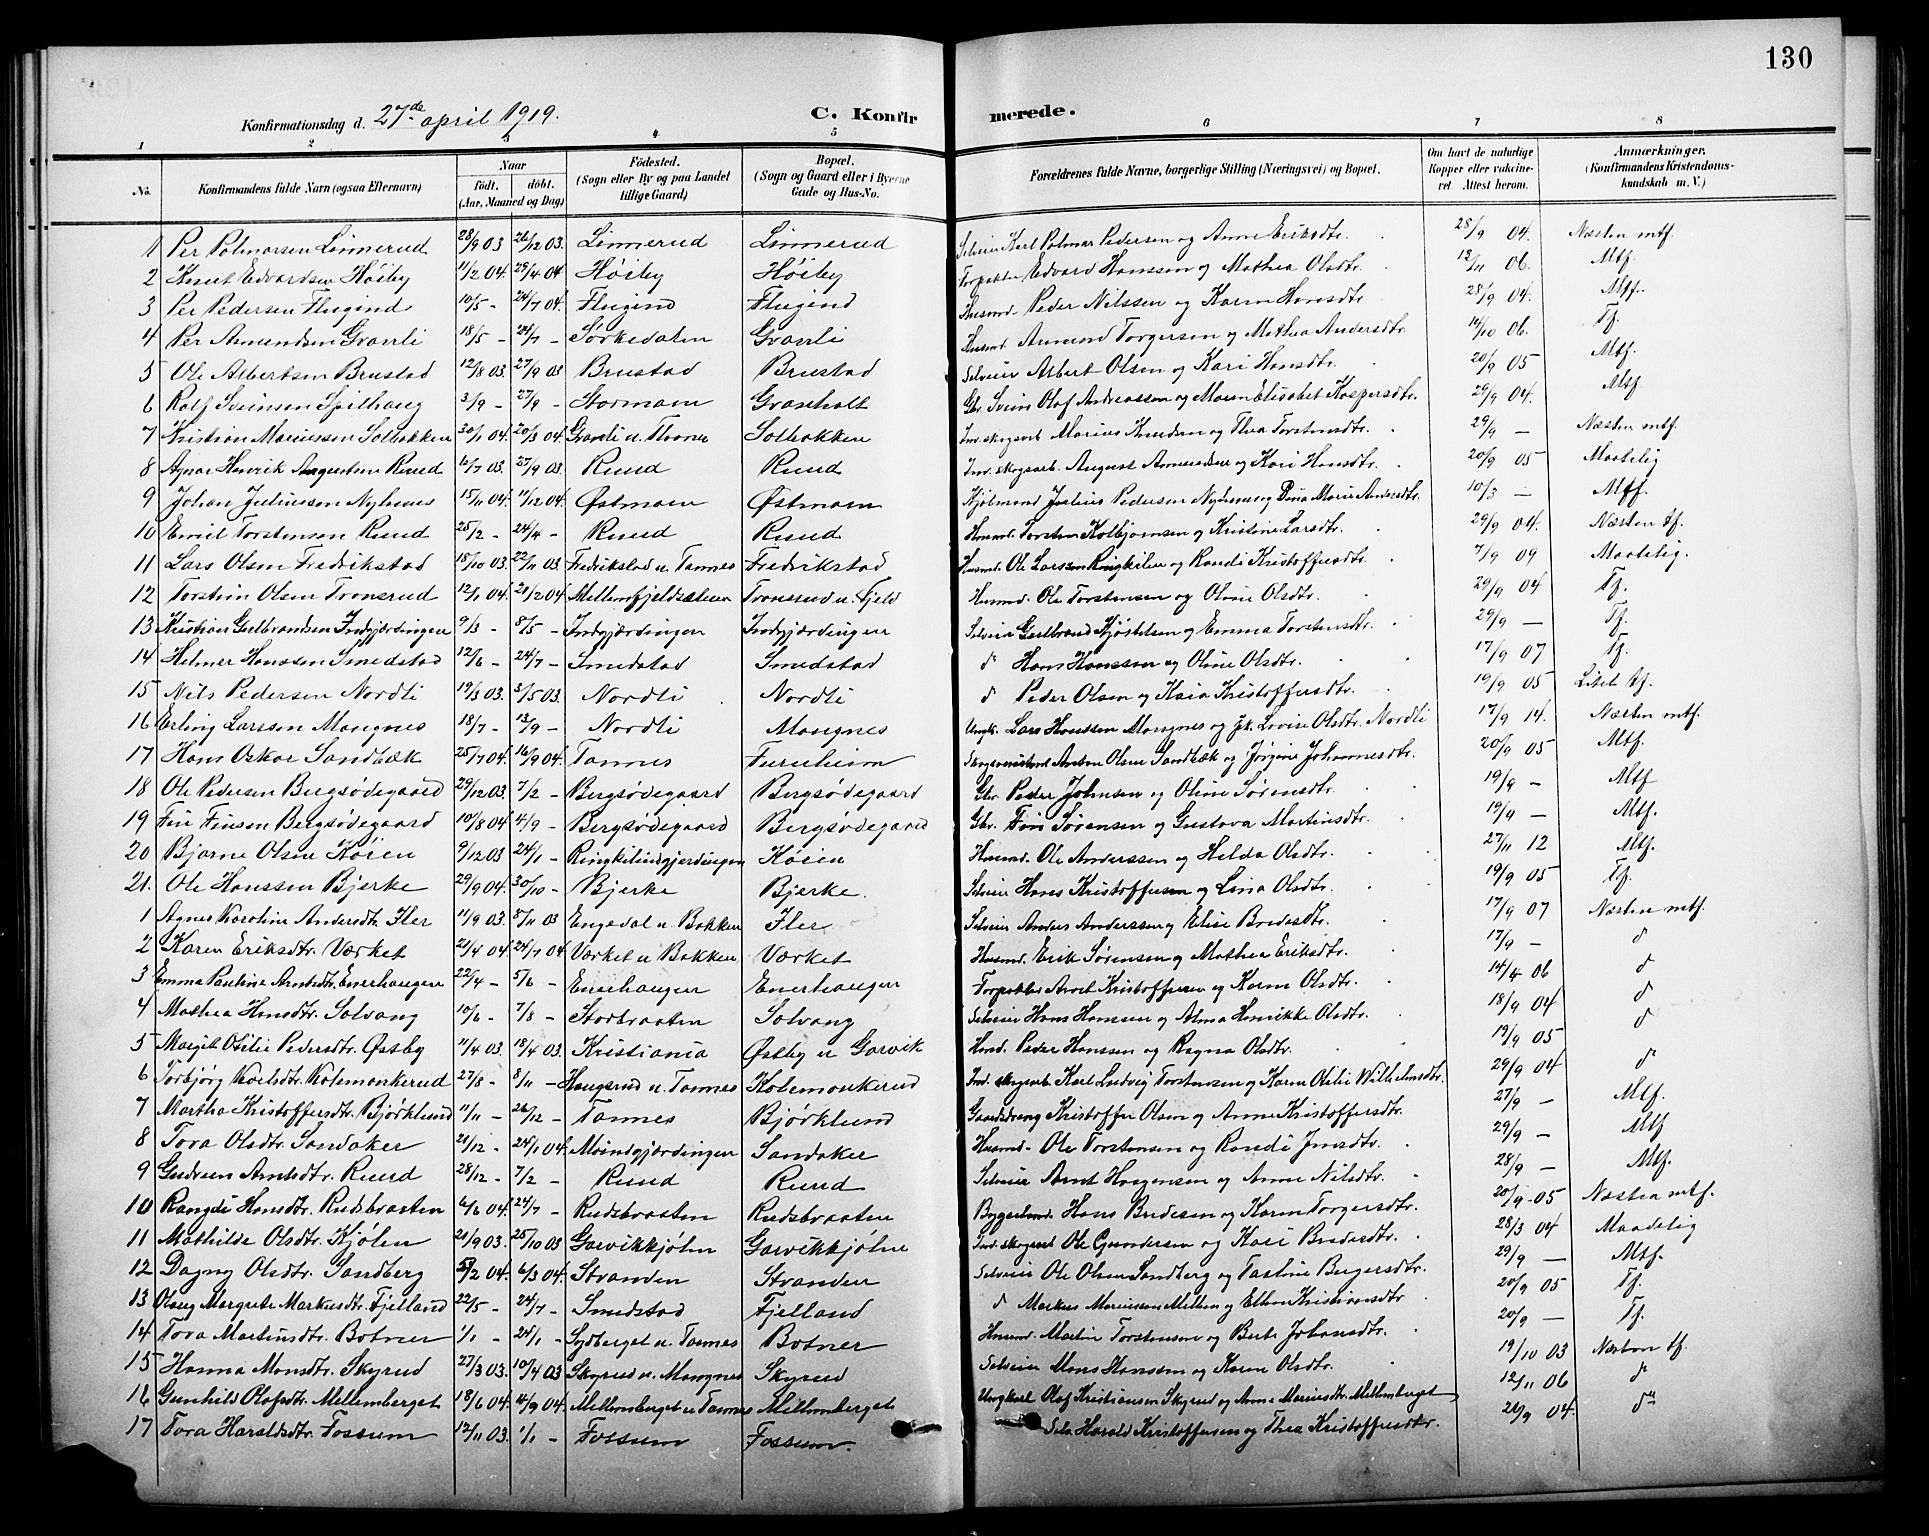 130
Konfirmationsdag d. 27de april 1919. C. Konfirmerede.
1 2 3 4 5 6 7 8
No. Konfirmandens fulde Navn (ogsaa Efternavn) Naar født. døbt. (Aar, Maaned og Dag) Fødested. (Sogn eller By og paa Landet tillige Gaard) Bopæl. (Sogn og Gaard eller i Byerne Gade og Hus-No. Forældrenes fulde Navne, borgerlige Stilling (Næringsvei) og Bopæl. Om havt de naturlige Kopper eller vakcineret. Attest herom. Anmærkninger. (Konfirmandens Kristendomskundskab m. V.)
1 Per Polmarsen Linnerud 28/9 03 26/12 03. Linnerud Linnerud Selveier Karl Polmar Pedersen og Anne Eriksdtr. 28/9 04. Næsten mtf.
2 Knut Edvardsen Høiby 11/2 04. 24/4 04. Høiby Høiby Forpakter Edvard Hanssen og Mathea Olsdtr. 12/11 06. Mtf.
3 Per Pedersen Flugind 10/5 - 24/7 04. Flugind Flugind Husmd. Peder Nilssen og Karen Hansdtr. 28/9 04. Mtf.
4 Per Amundsen Granli 18/5 - 24/7 - Sørkedalen Granli Husmd. Amund Torgersen og Mathea Andersdtr. 14/10 06. Tf.
5 Ole Albertsen Brustad 12/8 03. 27/9 03 Brustad Brustad Selveier Albert Olsen og Kari Hansdtr. 20/9 05 Mtf.
6 Rolf Sveinsen Spilhaug 3/9 - 27/9 - Stormoen Graaholt Gbr. Svein Olaf Andreassen og Maren Elisabet Kaspersdtr. 29/9 04. Mtf
7 Kristian Mariussen Solbakken 30/1 04. 20/3 04. Granli u. Thorner Solbakken Ind. skogsarb. Marius Knudsen og Thea Torstensdtr. 29/9 — Næsten mtf.
8 Agnar Henrik Augustsen Ruud 16/7 03. 27/9 03. Ruud Ruud Ind. skogsarb. August Amundsen og Kari Hansdtr. 20/9 05 Maatelig
9 Johan Juliussen Nyhuus 15/11 04. 11/12 04. Østmoen Østmoen Kjøbmand Julius Pedersen Nyhuus og Dina Marie Andersdtr. 10/3 — Mtf.
10 Emil Torstensen Ruud 25/2 - 24/4 - Ruud Ruud Husmd. Torsten Kolbjørnsen og Kristine Larsdtr. 29/9 04. Næsten tf.
11 Lars Olsen Fredrikstad 18/10 03. 22/11 03. Fredrikstad u. Tannes Fredrikstad Husmd. Ole Larssen Ringkilen og Randi Kristoffersdtr. 7/9 09 Maatelig.
12 Torstein Olsen Tronsrud 12/1 04. 21/2 04. Mellemfjeldsæteren Tronsrud u. Fjeld Husmd. Ole Torstensen og Oline Olsdtr. 29/9 04 Tf.
13 Kristian Gulbrandsen Indgjærdingen 9/3 - 8/5 - Indgjærdingen Indgjærdingen Selveier Gulbrand Kjøstelsen og Emma Torstensdtr. 29/9 — Tf.
14 Helmer Hanssen Smedstad 12/6 - 24/7 - Smedstad Smedstad d° Hans Hanssen og Oline Olsdtr. 17/9 07 Tf.
15 Nils Pedersen Nordli 19/3 03. 3/5 03. Nordli Nordli d° Peder Olsen og Kaia Kristoffersdtr. 19/9 05 Litet tf.
16 Erling Larssen Mangnes 18/7 - 13/9 - Nordli Mangnes Ungk. Lars Hanssen Mangnes og Pk. Lovise Olsdtr. Nordli 17/9 14. Næsten mtf.
17 Hans Oskar Sandbæk 25/7 04. 16/9 04. Tannes Furuheim Skogsassistent Anton Olsen Sandbæk og Jørgine Johannesdtr. 20/9 05 Mtf.
18 Ole Pedersen Bergsødegaard 29/12 03. 7/2 - Bergsødegaard Bergsødegaard Gbr. Peder Johnsen og Oline Sørensdtr. 19/9 — Mtf
19 Fin Finsen Bergsødegaard 10/8 04. 4/9 - Bergsødegaard Bergsødegaard Gbr. Finn Sørensen og Gustava Martinsdtr. 19/9 — Mtf.
20 Bjarne Olsen Køien 9/12 03 24/1 - Ringkilindgjerdingen Køien Husmd. Ole Anderssen og Helda Olsdtr. 27/11 12 Mtf.
21. Ole Hanssen Bjerke 29/9 04. 30/10 - Bjerke Bjerke. Selveier Hans Kristoffersen og Lina Olsdtr. 19/9 05 Tf.
1 Agnes Karoline Andersdtr. Fler 11/9 03. 8/11 03 Engedal u. Bakken Fler Selveier Anders Anderssen og Elise Bredesdtr. 17/9 07 Næsten mtf.
2 Karen Eriksdtr. Værket 21/4 04. 24/7 04. Værket u Bakken Værket Husmd. Erik Sørensen og Mathea Eriksdtr. 17/9 - d°
3 Emma Pauline Arntsdtr. Enerhaugen 22/4 - 5/6 - Enerhaugen Enerhaugen Forpakter Arnt Kristoffersen og Karen Olsdtr. 14/4 06 d°
4 Mathea Hansdtr. Solvang 10/6 - 7/8 - Storbraaten Solvang Selveier Hans Hanssen og Alma Henrikke Olsdtr. 18/9 04 d°
5 Margit Otilie Pedersdtr. Østby 11/4 03. 18/4 03. Kristiania Østby u Garvik Husmd. Peder Hanssen og Ragna Olsdtr. 19/9 05 d°
6 Torbjørg Karlsdtr. Kolemonkerud 27/8 - 8/11 - Haugsrud u. Tannes Kolemonkerud Ind. skogsarb. Karl Ludvig Torstensen og Karen Otilie Wilhelmsdtr. 29/9 04 d°
7 Martha Kristoffersdtr. Bjørklund 11/11 - 26/12 - Tannes Bjørklund Gaardsdreng Kristoffer Olsen og Anne Kristoffersdtr. 27/9 — Mtf.
8 Tora Olsdtr. Sandaker 21/12 - 24/1 04. Moindgjærdingen Sandaker Husmd. Ole Torstensen og Randi Jensdtr. 29/9 — Mtf
9 Gudrun Arntsdtr. Ruud 28/12 - 7/2 - Ruud Ruud Selveier Arnt Haagensen og Anne Nilsdtr. 28/9 — Mtf.
10 Rangdi Hansdtr. Rudsbraaten 6/6 04. 24/7 - Rudsbraaten Rudsbraaten Bygselmd. Hans Bredesen og Karen Torgersdtr. 20/9 - 05 Næsten mtf.
11 Mathilde Olsdtr. Kjølen 21/9 03. 25/10 03 Garvikkjølen Garvikkjølen Ind. skogsarb Ole Gundersen og Kari Bredesdtr. 28/3 04 Maadelig
12 Dagny Olsdtr. Sandberg 5/2 04. 6/3 04. Stranden Stranden Selveier Ole Olsen Sandberg og Pastine Bergersdtr. 29/9 — Mtf.
13 Olaug Margrete Markusdtr. Fjelland 22/5 - 24/7 - Smedstad Fjelland d° Markus Mariussen Millem og Ellen Kristiansdtr. 20/9 05 Tf.
14 Tora Martinsdtr. Botner 1/1 - 24/1 - Sydberget u. Tannes Botner Husmd. Martin Torstensen og Berte Johansdtr. 20/9 — Tf.
15 Hanna Monsdtr. Skyrud 27/3 03. 10/4 03. Skyrud u. Mangnes Skyrud Selveier Mons Hanssen og Karen Olsdtr. 19/10 03 Næsten tf.
16 Gunhild Olafsdtr. Mellemberget 18/6 04. 4/9 04. Mellemberget u Tannes Mellemberget Ungkarl Olaf Kristiansen Skyrud og Anne Mariusdtr. Mellemberget 12/11 06 d°
17 Tora Haraldsdtr. Fossum 12/11 03. 1/1 - Fossum Fossum. Selv. Harald Kristoffersen og Thea Kristoffersdtr. 21/9 04. d°